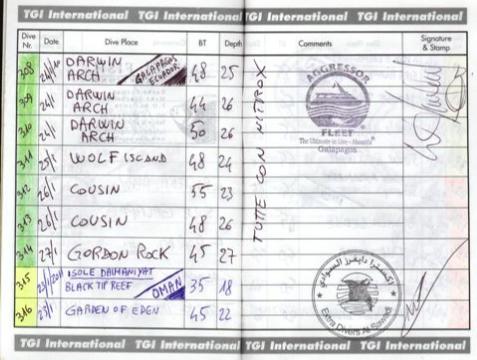 TGI International TGI International TGI International TGI International
Dive Nr. Date Dive Place BT Depth Comments Signature & Stamp
308 24/1 DARWIN ARCH GALAPAGOS ECUADOR 48 25
309 24/1 DARWIN ARCH 44 26
310 24/1 DARWIN ARCH 50 26
311 25/1 WOLF ISLAND 48 24
312 26/1 COUSIN 55 23
313 26/1 COUSIN 48 26
314 27/1 GORDON ROCK 45 27
315 ISOLE DAIMANIYAT
BLACK TIP REEF OMAN 35 18
316 23/1 GARDEN OF EDEN 45 22
TUTTE CON NITROX
AGGRESSOR
FLEET
Galapagos
Extra Divers Al Sawadi
TGI International TGI International TGI International TGI International